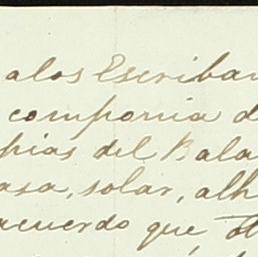 alos Escriban
componia d
pias del Bala
asa, solar, alh
acuerdo que, ot